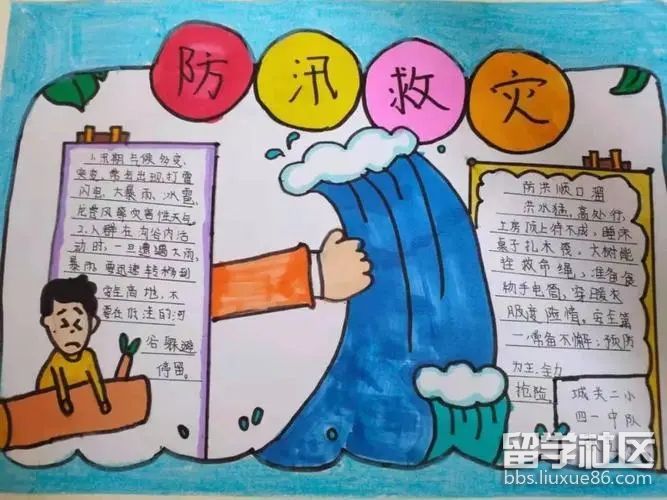 防汛救灾
1.汛期气候多变、
突变,常会出现打雷
闪电、大暴雨、冰雹、
龙卷风等灾害性天气
2.人群在沟谷内活
动时,一旦遭遇大雨、
暴雨,要迅速转移到
安全高地,不
要在低洼的河
谷躲避
停留。
防洪顺口溜
洪水猛,高处行,
土房顶上待不成,睡床
桌子扎木筏,大树能
拴救命绳,准备食
物手电筒,穿暖衣
服度险情,安全第
一,常备不懈;预防
为主,全力
抢险
城关二小
四一中队
留学社区
bbs.liuxue86.com